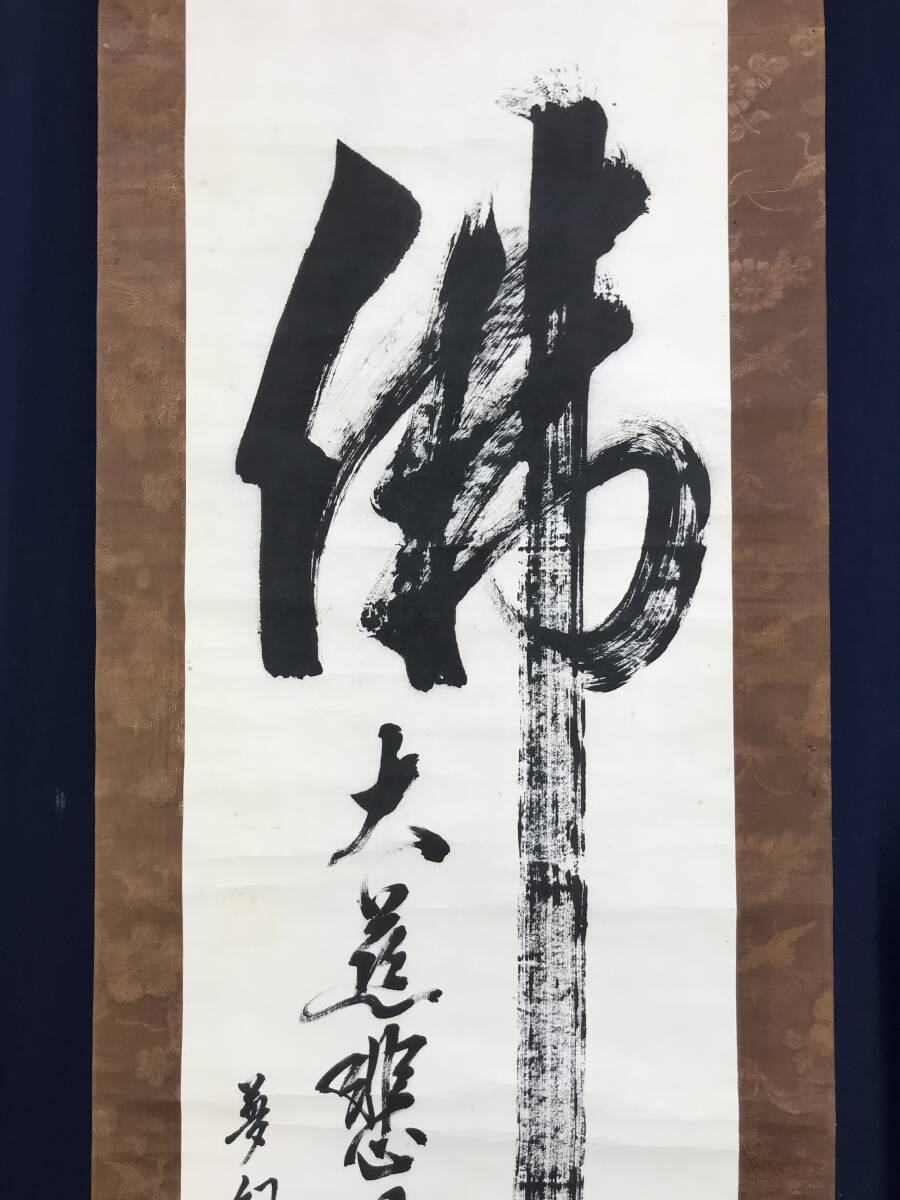 佛
大慈悲
夢幻